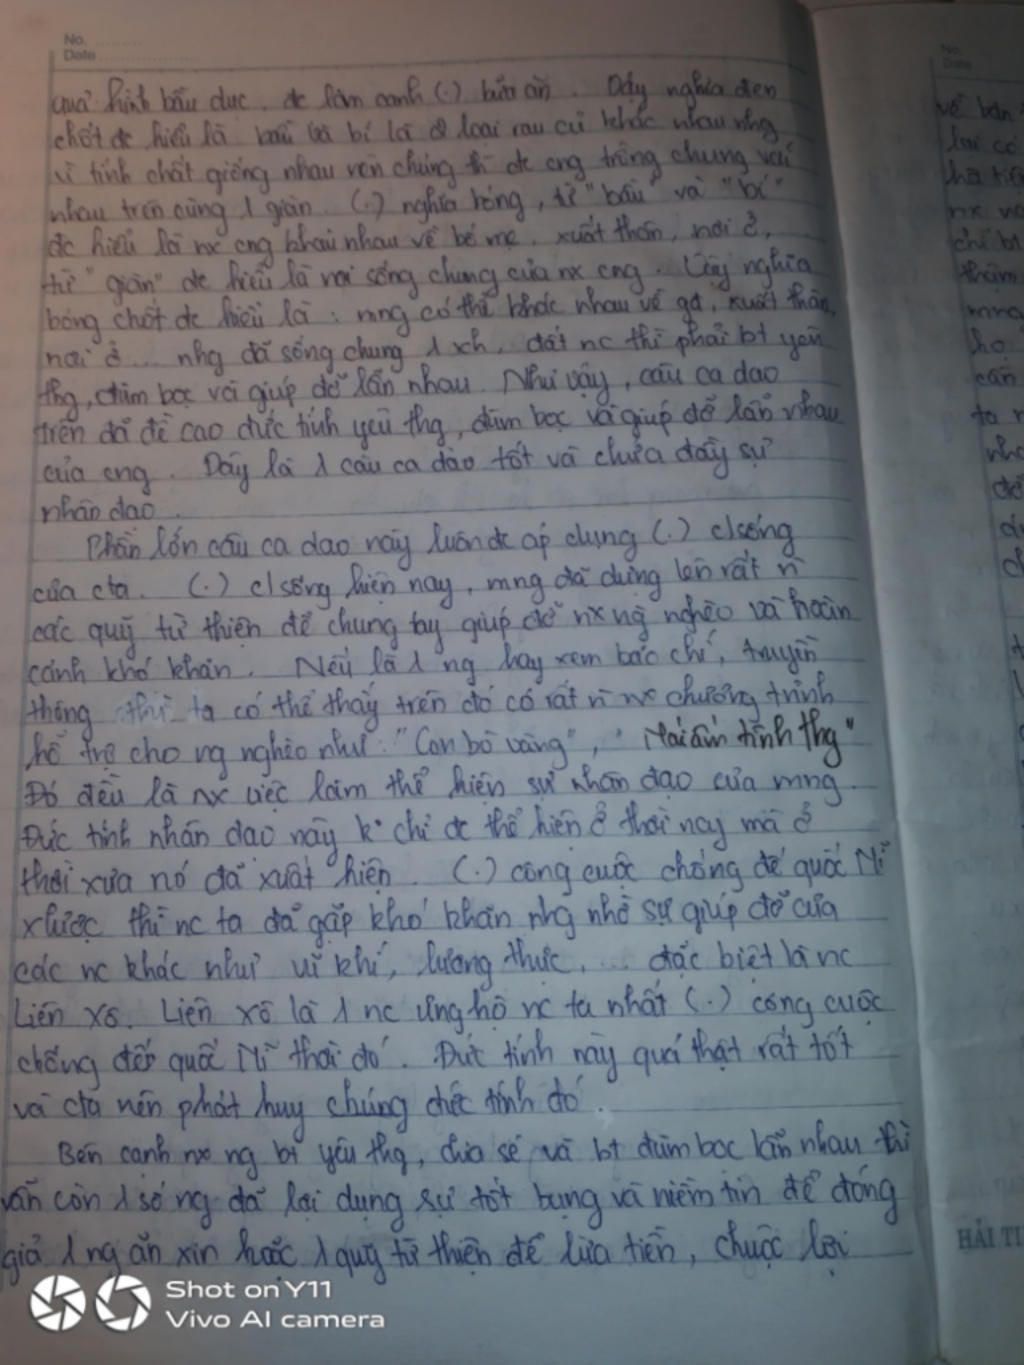 No.
Date
quả hình bầu dục, đc làm canh (.) bữa ăn. Dãy nghĩa đen
chốt đc hiểu là bầu và bí là 2 loại rau củ khác nhau nhg
vì tính chất giống nhau nên chúng thì đc cng trồng chung với
nhau trên cùng 1 giàn. (.) nghĩa bóng, từ "bầu" và "bí"
đc hiểu là nx cng khai nhau về bố mẹ, xuất thân, nơi ở,
từ "giàn" đc hiểu là nơi sống chung của nx cng. Vậy nghĩa
bóng chốt đc hiểu là: mng có thể khác nhau về gđ, xuất thân,
nơi ở... nhg đã sống chung 1 xh, đất nc thì phải bt yêu
thg, đùm bọc và giúp đỡ lẫn nhau. Như vậy, câu ca dao
trên đã đề cao đức tính yêu thg, đùm bọc và giúp đỡ lẫn nhau
của cng. Đây là 1 câu ca dao tốt và chứa đầy sự
nhân đạo.
Phần lớn câu ca dao này luôn đc áp dụng (.) c/sống
của cta. (.) c/sống hiện nay, mng đã dựng lên rất n
các quỹ từ thiện để chung tay giúp đỡ nx ng nghèo và hoàn
cảnh khó khăn. Nếu là 1 ng hay xem báo chí, truyền
thông thì ta có thể thấy trên đó có rất n nx chương trình
hỗ trợ cho ng nghèo như: "Con bò vàng", "Mái ấm tình thg"
Đó đều là nx việc làm thể hiện sự nhân đạo của mng.
Đức tính nhân đạo này k chỉ đc thể hiện ở thời nay mà ở
thời xưa nó đã xuất hiện. (.) công cuộc chống đế quốc Mĩ
xlược thì nc ta đã gặp khó khăn nhg nhờ sự giúp đỡ của
các nc khác như vũ khí, lương thực, ... đặc biệt là nc
Liên Xô. Liên xô là 1 nc ủng hộ nc ta nhất (.) công cuộc
chống đế quốc Mĩ thời đó. Đức tính này quá thật rất tốt
và cta nên phát huy chúng đức tính đó.
Bên cạnh nx ng bt yêu thg, chia sẻ và bt đùm bọc lẫn nhau thì
vẫn còn 1 số ng đã lợi dụng sự tốt bụng và niềm tin để đóng
giả 1 ng ăn xin hoặc 1 quỹ từ thiện để lừa tiền, chuộc lợi
No.
Date
về bản
lại có
nx
chỉ bt
thậm
mng
họ
cần
ta
HẢI TI
Shot on Y11
Vivo AI camera